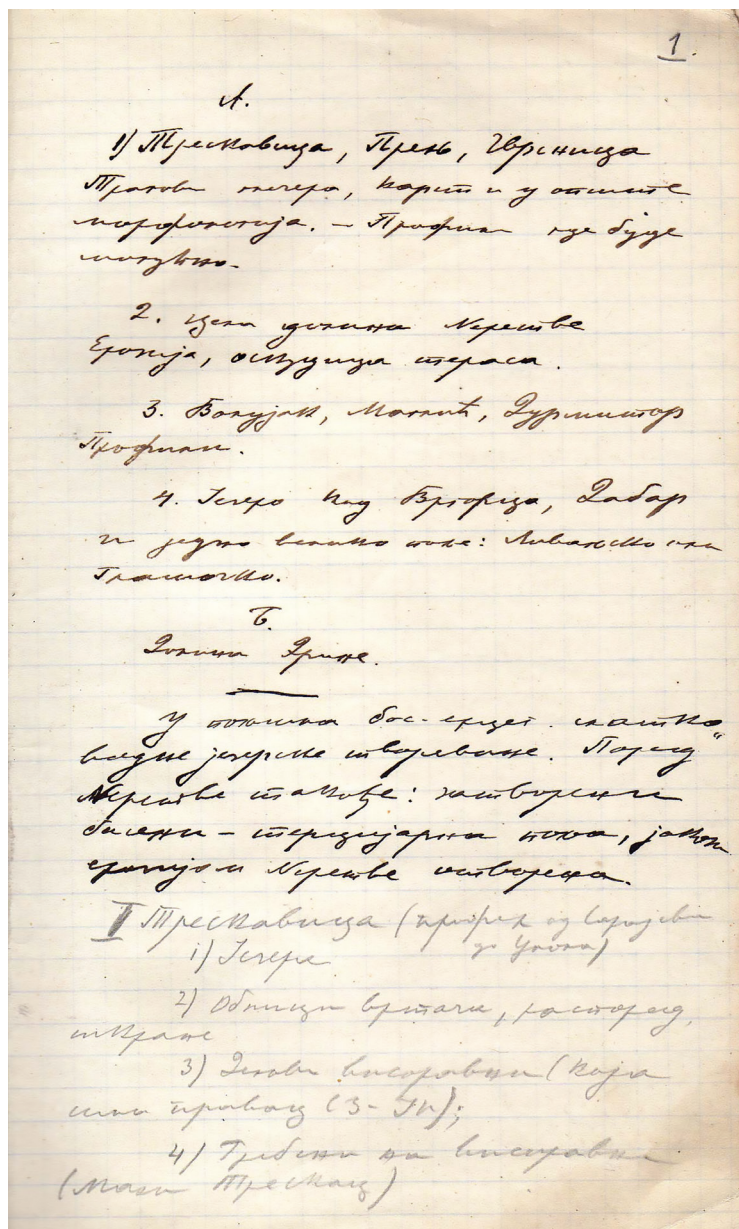 1.
А.
1) Трескавица, Прењ, Чврсница
Трагови глечера, карст и у опште
морфологија. – Профили где буде
могућно.
2. Цела долина Неретве
Ерозија, оскудица тераса.
3. Волујак, Маглић, Дурмитор
Профили.
4. Језеро код Вргорца, Дабар
и једно велико поље: Ливањско или
Гламочко.
Б.
Долина Дрине.
У пољима бос-ерцег. слатко-
водне језерске творевине. Поред
Неретве такође: затворени
басени – терцијарна поља,
ерозијом Неретве отворена.
I Трескавица (профил од Сарајева
до Улога)
1) Језера
2) Облици вртача, распоред,
шкрапе
3) Делови висоравни (која
има правац (З-ЈИ);
4) Гребени на висоравни
(Мали Трескац)